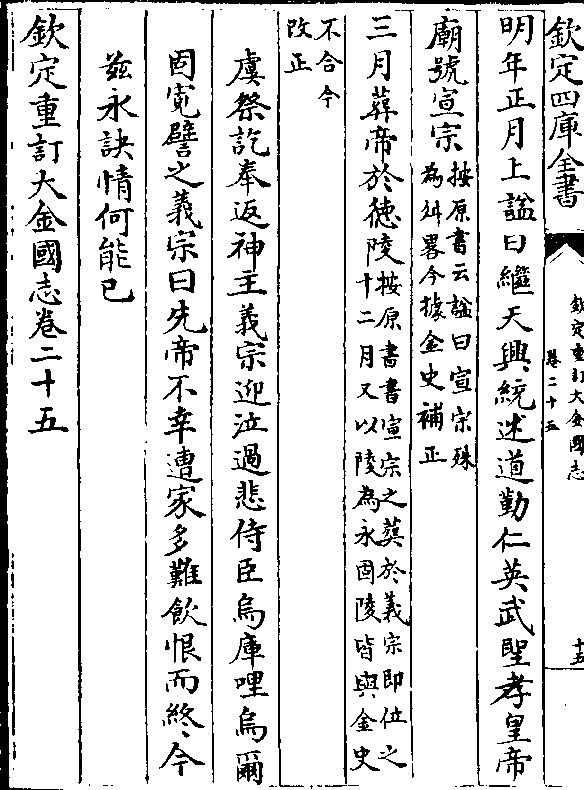 欽定四庫全書
欽定重訂大金國志
卷二十五
十五
明年正月上諡曰繼天興統述道勤仁英武聖孝皇帝
廟號宣宗
按原書云諡曰宣宗殊
為舛畧今據金史補正
三月葬帝於德陵
按原書書宣宗之葬於義宗即位之
十二月又以陵為永固陵皆與金史
不合今
改正
虞祭訖奉返神主義宗迎泣過悲侍臣烏庫哩烏爾
固寛譬之義宗曰先帝不幸遭家多難飲恨而終今
兹永訣情何能已
欽定重訂大金國志卷二十五